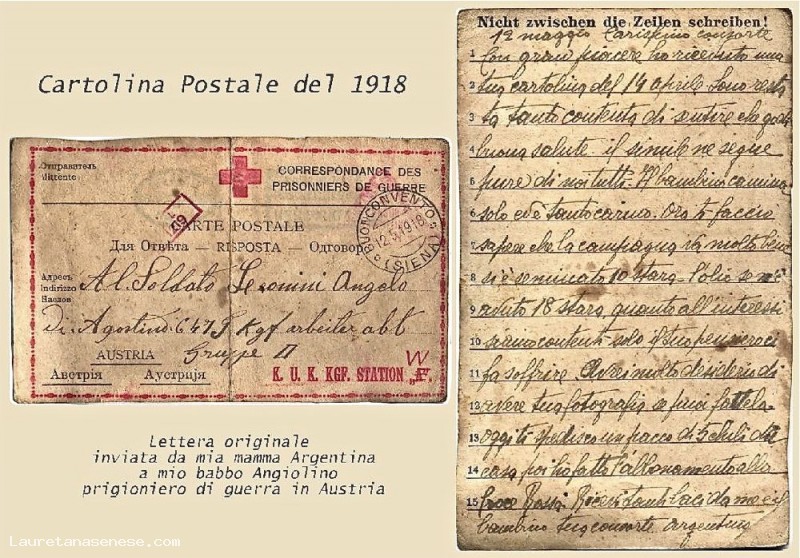 Cartolina Postale del 1918
Отправитель
Mittente
CORRESPONDANCE DES
PRISONNIERS DE GUERRE
CARTE POSTALE
Для Отвѣта — RISPOSTA — Одговор
BUONCONVENTO
12.5.1918
(SIENA)
Адресъ
Indirizzo
Наслов
Al Soldato Leonini Angelo
di Agostino 647 Kgf arbeiter abt
Gruppe II
AUSTRIA
Австрія Аустрија
K. U. K. KGF. STATION „F"
W
Lettera originale
inviata da mia mamma Argentina
a mio babbo Angiolino
prigioniero di guerra in Austria
Lauretanasenese.com
Nicht zwischen die Zeilen schreiben!
12 maggio Carissimo consorte
1 Con gran piacere ho ricevuto una
2 tua cartolina del 19 aprile. Sono resta
3 ta tanto contenta di sentire che godi
buona salute il simile ne segue
5 pure di noi tutti. Il bambino camina
6 solo ed è tanto carino. Ora ti faccio
7 sapere che la campagna va molto bene
8 si è seminato 10 stara. L'olio se n'è
9 avuto 18 stara, quanto all'interessi
10 siamo contenti solo il tuo pensiero ci
11 fa soffrire. Avrei molto desiderio di
12 avere tua fotografia se puoi fattela.
13 Oggi ti spedisco un pacco di 5 chili di
14 casa poi ho fatto l'abbonamento alla
15 Croce Rossa Ricevi tanti baci da me e il
bambino tua consorte Argentina